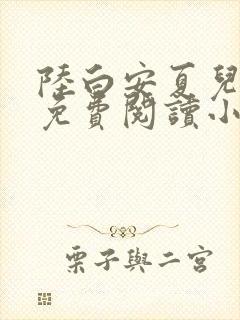 陸白安夏兒
免費閱讀小
栗子與二宮